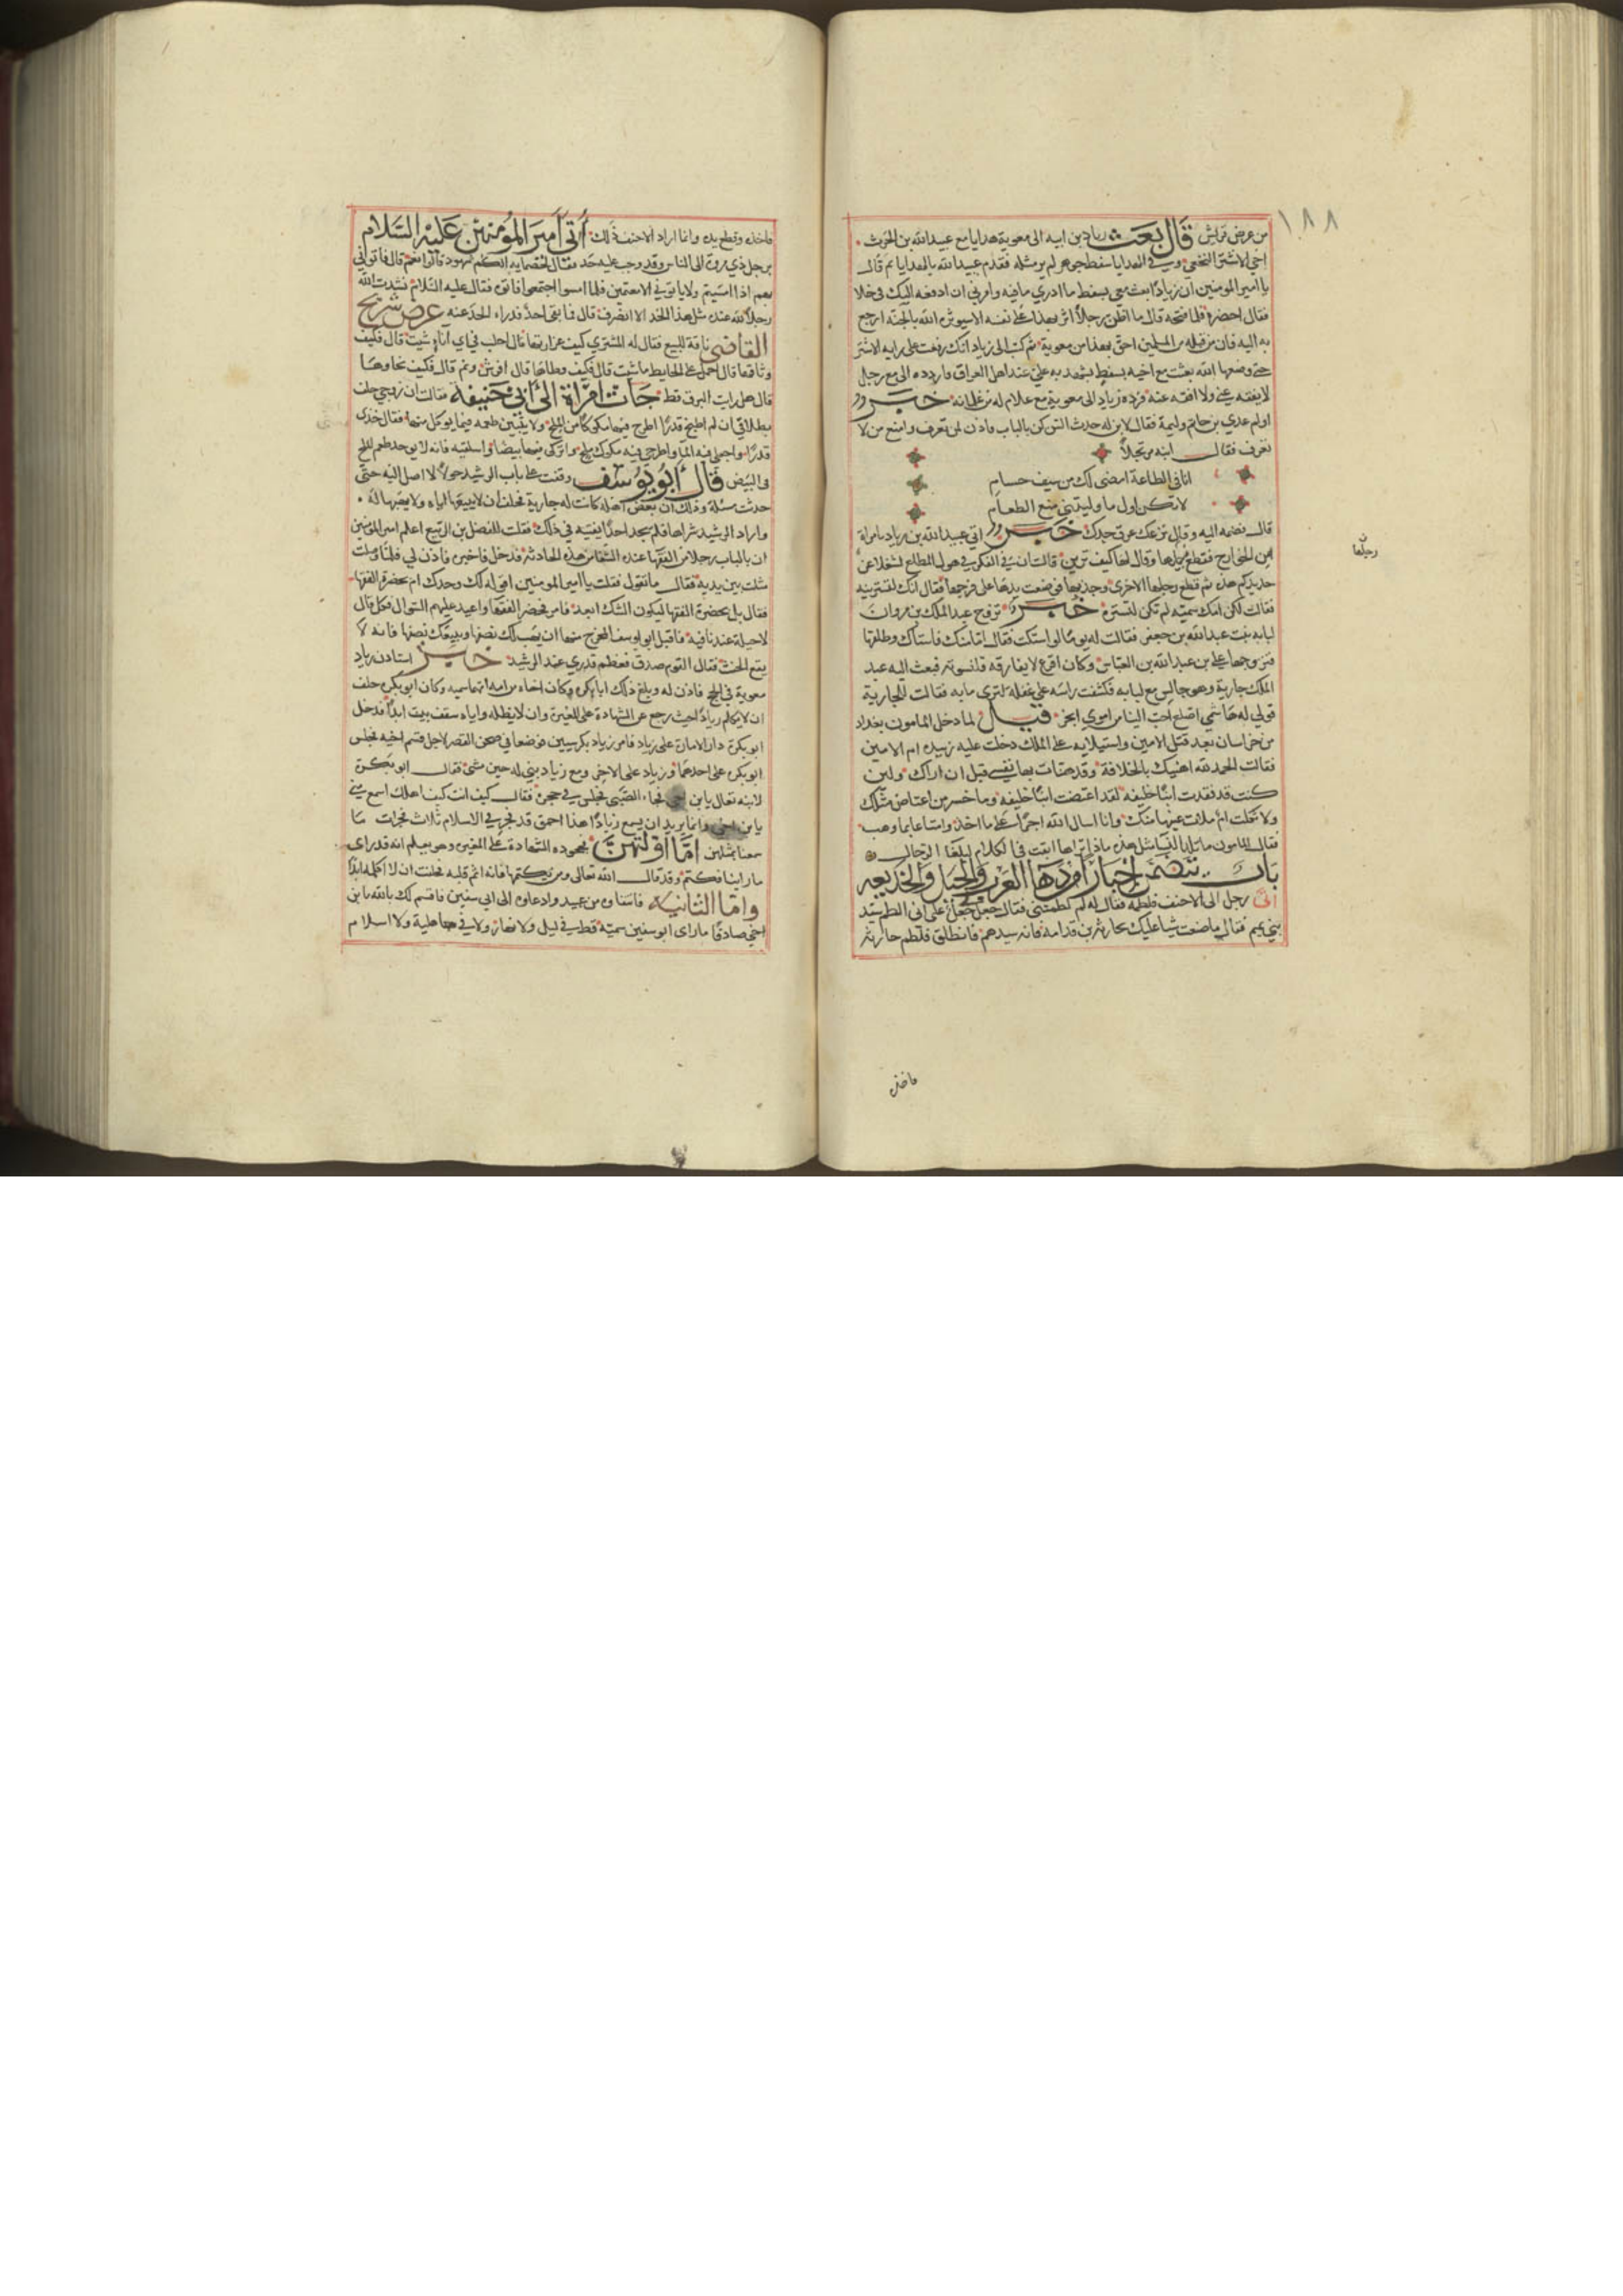 ١٨٨
من عرض قريش قال بعث زياد بن ابيه الى معوية هدايا مع عبيد الله بن الحرث
اخي الاشتر النخعي وفي الهدايا سفط جوهر لم ير مثله فقدم عبيد الله بالهدايا ثم قال
يا امير المومنين ان زيادا بعث معي بسفط ما ادري ما فيه وامرني ان ادفعه اليك في خلا
فقال احضره فلما فتحه قال ما اظن رجلا اثر بهذا على نفسه الا سيوثره الله بالجنة ارجع
به اليه فان من قبله من المسلمين احق بهذا من معوية ثم كتب الى زياد انك رفعت على رايه الاشتر
حتى وضعها الله بعثت مع اخيه بسفط يشهد به علي عند اهل العراق فاردده الي مع رجل
لا يفقه عني ولا افقه عنه فرده زياد الى معوية مع غلام له من غلمانه خبر
اولم عدي بن حاتم وليمة فقال لابن له حدث السن كن بالباب فاذن لمن تعرف وامنع من لا
تعرف فقال ابنه مرتجلا
انا في الطاعة امضى لك من سيف حسام
لا تكن اول ما وليتني منع الطعام
قال فضمه اليه وقال نزعك عرق جدك خبر اتي عبيد الله بن زياد بامراة
من الخوارج فقطع رجلها وقال لها كيف ترين قالت ان في الفكر في هول المطلع لشغلا عن
حديدكم هذه ثم قطع رجلها الاخرى وجذبها فوضعت يدها على فرجها فقال انك لتسترينه
فقالت لكن امك سمية لم تكن تستره خبر تزوج عبد الملك بن مروان
لبابه بنت عبد الله بن جعفر فقالت له يوما لو استكت فقال اما منك فاستاك وطلقها
فتزوجها علي بن عبد الله بن العباس وكان اقرع لا يفارقه قلنسوته فبعث اليه عبد
الملك جارية وهو جالس مع لبابه فكشفت راسه على غفلة لترى ما به فقالت للجارية
قولي له هاشمي اصلع احب الينا من اموي ابخر قيل لما دخل المامون بغداد
من خراسان بعد قتل الامين واستيلايه على الملك دخلت عليه زبيده ام الامين
فقالت الحمد لله اهنيك بالخلافة وقد هنات بها نفسي قبل ان اراك ولين
كنت قد فقدت ابنا خليفه لقد اعتضت ابنا خليفه وما خسر من اعتاض مثلك
ولا ثكلت ام ملات عينها منك وانا اسال الله اجرا على ما اخذ وامتاعا بما وهب
فقال المامون ما تلد النسا مثل هذه ماذا تراها ابقت في الكلام لبلغا الرجال
باب يتضمن اخبار امردها العرب والحيل والخديعه
اتى رجل الى الاحنف فلطمه فقال له لم لطمتني فقال جعل لي جعل على ان الطم سيد
بني تميم فقال ما صنعت شيا عليك بحارثه بن قدامه فانه سيدهم فانطلق فلطم حارثه
ن
رجلها
فاخذه
فاخذه وقطع يده وانما اراد الاحنف ذلك اتى امير المؤمنين عليه السلام
برجل ذي مروة الى الناس وقد وجب عليه حد فقال لخصمايه الكم شهود قالوا نعم قال فاتوني
بهم اذا امسيتم ولا ياتوني الا معتمين فلما امسوا اجتمعوا فاتوه فقال عليه السلام نشدت الله
رجلا لله عنده مثل هذا الحد الا انصرف قال فما بقي احد فدراء الحد عنه عرض شريح
القاضي ناقة للبيع فقال له المشتري كيف غزارتها قال احلب في اي اناء شيت قال فكيف
وثاقها قال احمل على الحايط ما شيت قال فكيف وطاها قال افرش ونم قال فكيف نجاوها
قال هل رايت البرق قط جات امراة الى ابي حنيفة فقالت ان زوجي حلف
بطلاقي ان لم اطبخ قدرا اطرح فيها مكوكا من الملح ولا يتبين طعمه فيما يوكل منها فقال خذي
قدرا واجعلي فيه الما واطرحي فيه مكوك ملح واتركي فيها بيضا واسلقيه فانه لا يوجد طعم الملح
في البيض قال ابو يوسف وقفت على باب الرشيد حولا لا اصل اليه حتى
حدثت مسئلة وذلك ان بعض اهله كانت له جارية فحلف ان لا يبيعها اياه ولا يهبها له
واراد الرشيد شراها فلم يجد احدا يفتيه في ذلك فقلت للفضل بن الربيع اعلم امير المؤمنين
ان بالباب رجلا من الفقها عنده الشفا من هذه الحادثه فدخل فاخبره فاذن لي فلما وصلت
مثلت بين يديه فقال ما تقول فقلت يا امير المومنين اقوله لك وحدك ام بحضرة الفقها
فقال بل بحضرة الفقها ليكون الشك ابعد فامر فحضر الفقها واعيد عليهم السوال فكل قال
لا حيلة عندنا فيه فاقبل ابو يوسف المخرج منها ان يهب لك نصفها ويبيعك نصفها فانه لا
يقع الحنث فقال القوم صدق فعظم قدري عند الرشيد خبر استاذن زياد
معوية في الحج فاذن له وبلغ ذلك ابا بكره وكان اخاه من امه امهما سميه وكان ابو بكره حلف
ان لا يكلم زيادا حيث رجع عن الشهادة على المغيرة وان لا يظله واياه سقف بيت ابدا فدخل
ابو بكرة دار الامارة على زياد فامر زياد بكرسيين فوضعا في صحن القصر لاجل قسم اخيه فجلس
ابو بكره على احدهما وزياد على الاخر ومع زياد بني له حين مشى فقال ابو بكرة
لابنه تعال يابن اخي فجاء الصبي فجلس في حجره فقال كيف انت كيف اهلك اسمع مني
يابن اخي وانما يريد ان يسمع زيادا هذا احمق قد فجر في الاسلام ثلاث فجرات ما
سمعنا بمثلهن اما اولتهن فجحوده الشهادة على المغيره وهو يعلم انه قد راى
ما راينا فكتم وقد قال الله تعالى ومن يكتمها فانه اثم قلبه فحلفت ان لا اكلمه ابدا
واما الثانيه فانتفاوه من عبيد وادعاوه الى ابي سفين فاقسم لك بالله يابن
اخي صادقا ما راى ابو سفين سمية قط في ليل ولا نهار ولا في جاهلية ولا اسلام